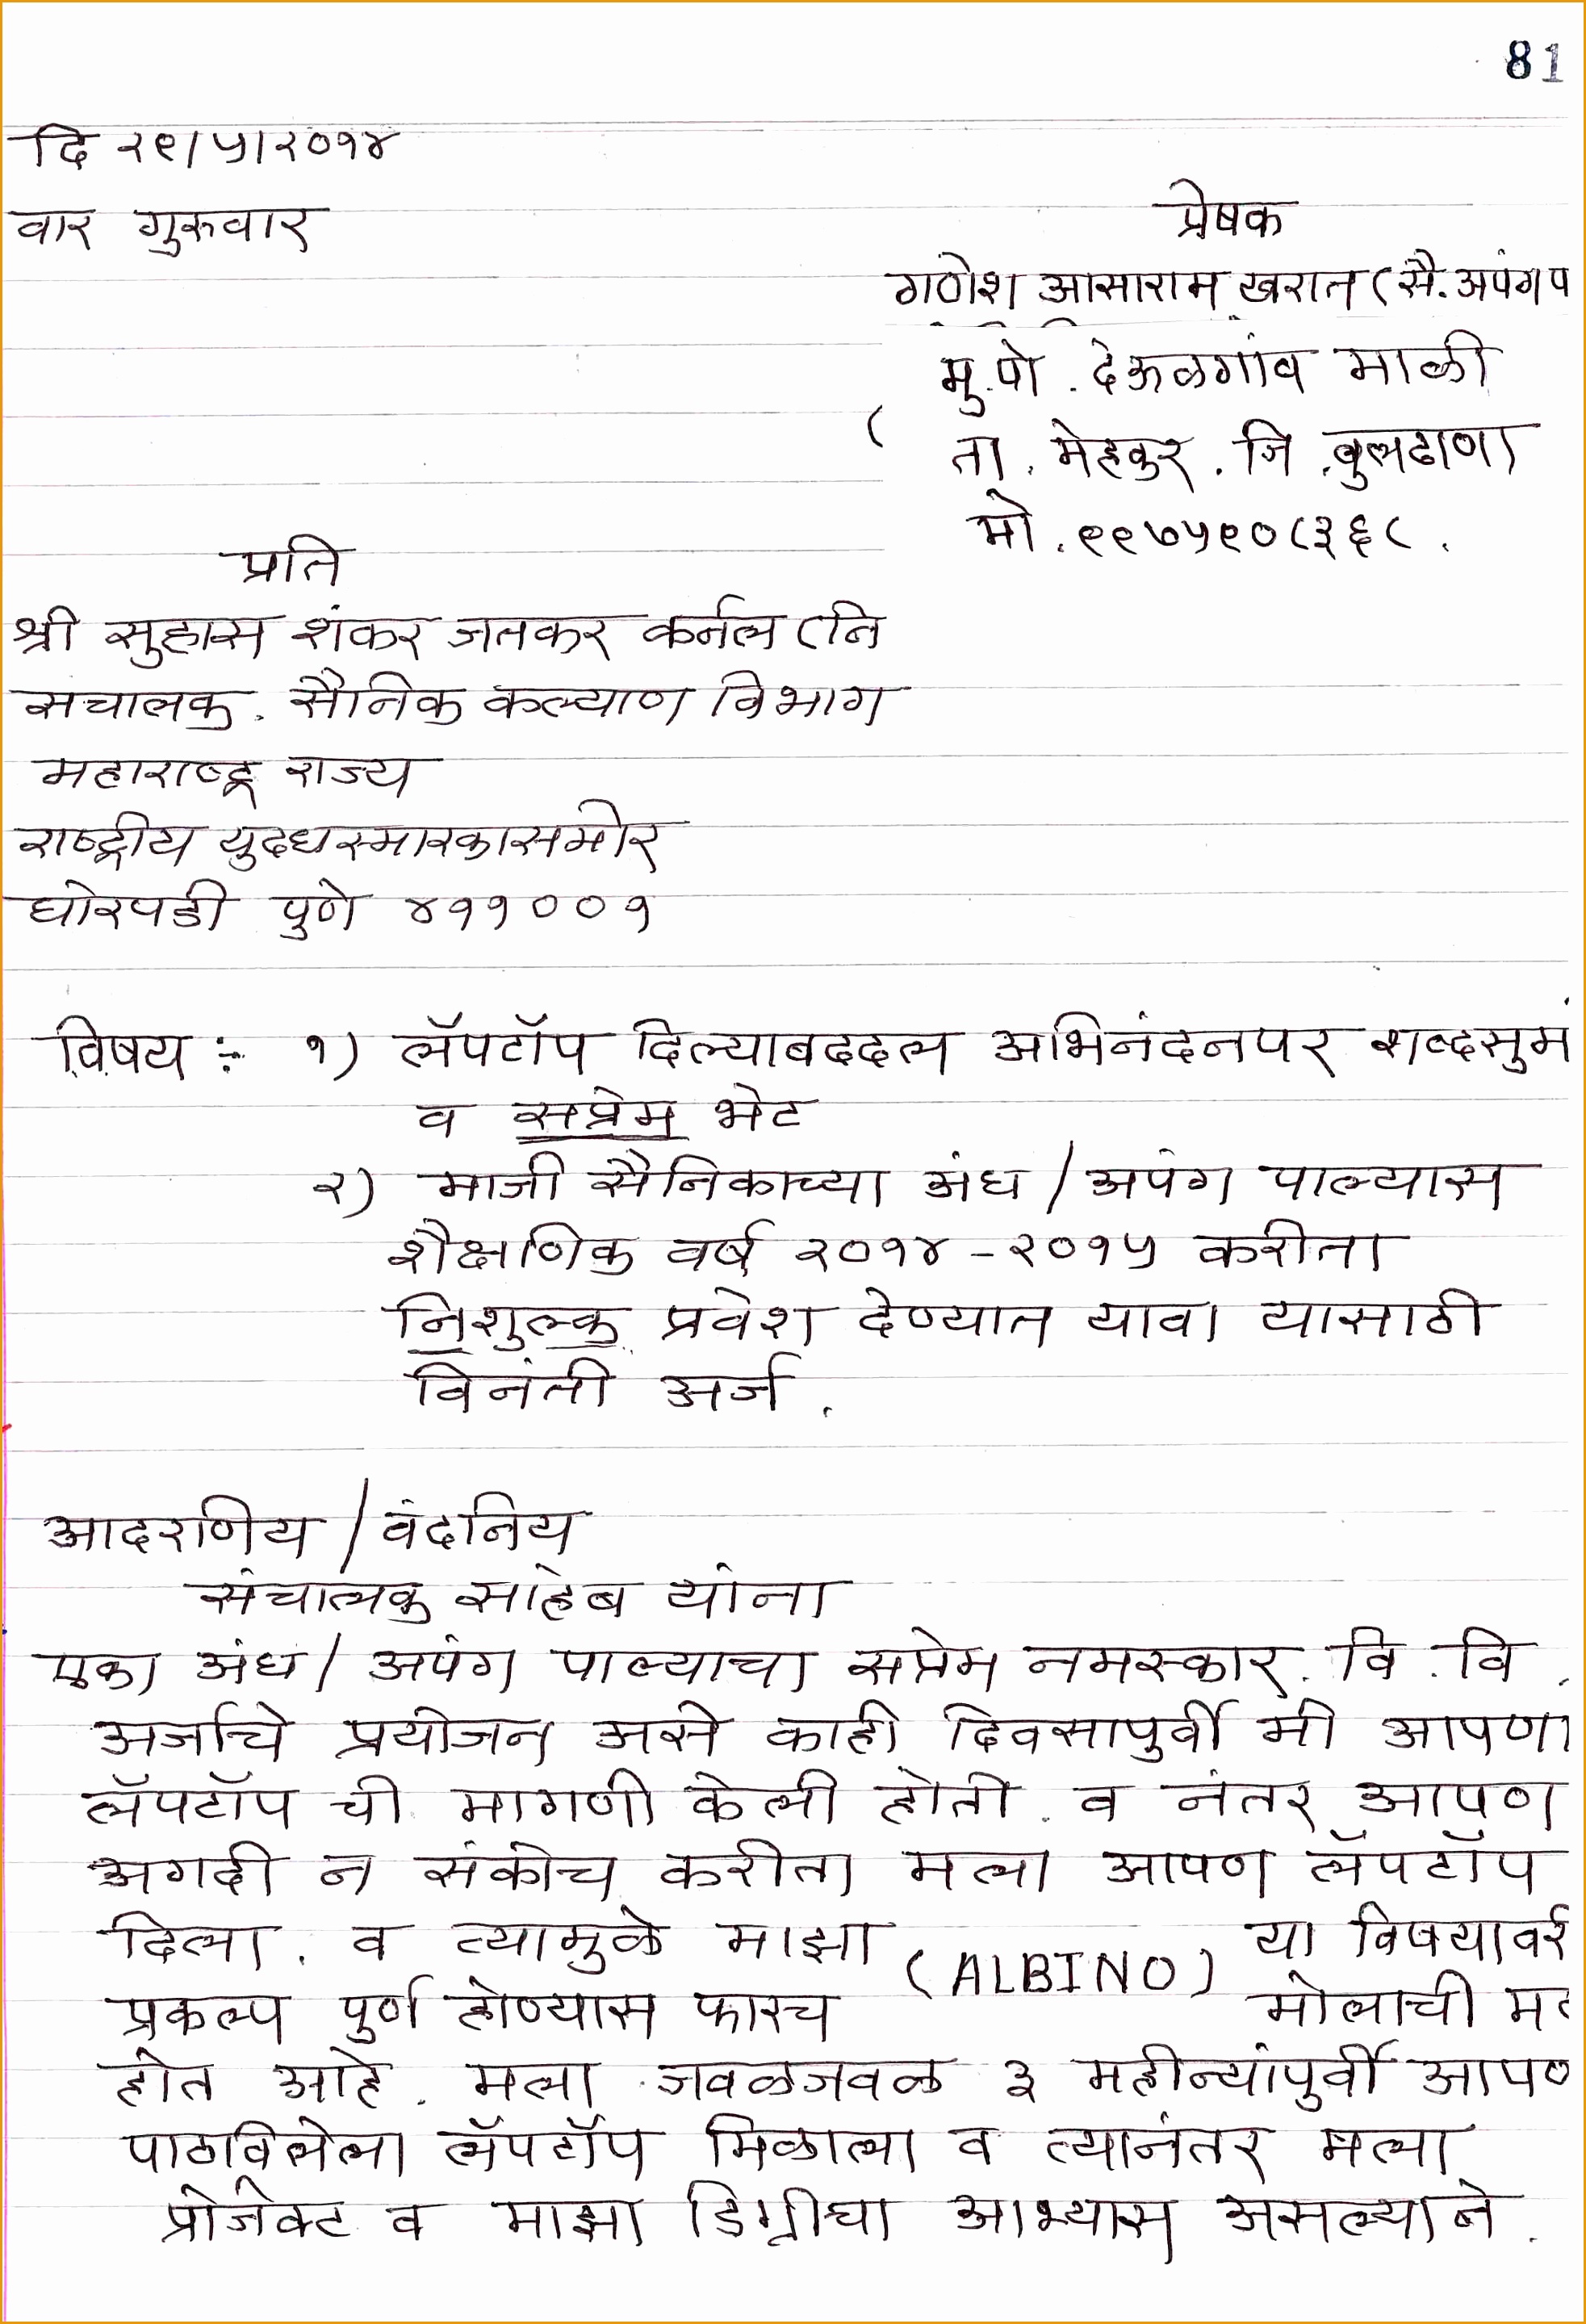 81
दि २९/५/२०१४
वार गुरुवार
प्रेषक
गणेश आसाराम खरात (सै. अपंग प
मु. पो. देऊळगांव माळी
ता. मेहकर. जि. बुलढाणा
मो. ९९७५९०८३६८.
प्रति
श्री सुहास शंकर जतकर कर्नल (नि
सचालक. सैनिक कल्याण विभाग
महाराष्ट्र राज्य
राष्ट्रीय युदधस्मारकासमोर
घोरपडी पुणे ४११००१
विषय :- १) लॅपटॉप दिल्याबददल अभिनंदनपर शब्दसुमं
व सप्रेम भेट
२) माजी सैनिकाच्या अंध / अपंग पाल्यास
शैक्षणिक वर्ष २०१४-२०१५ करीता
निशुल्क प्रवेश देण्यात यावा यासाठी
विनंती अर्ज.
आदरणिय / वंदनिय
संचालक साहेब यांना
एका अंध / अपंग पाल्याचा सप्रेम नमस्कार. वि. वि.
अर्जाचे प्रयोजन असे काही दिवसापुर्वी मी आपणा
लॅपटॉप ची मागणी केली होती. व नंतर आपण
अगदी न संकोच करीता मला आपण लॅपटॉप
दिला. व त्यामुळे माझा (ALBINO) या विषयावर
प्रकल्प पुर्ण होण्यास फारच मोलाची मद
होत आहे. मला जवळजवळ ३ महीन्यांपुर्वी आपण
पाठविलेला लॅपटॉप मिळाला व त्यानंतर मला
प्रोजेक्ट व माझा डिग्रीचा आभ्यास असल्याने.